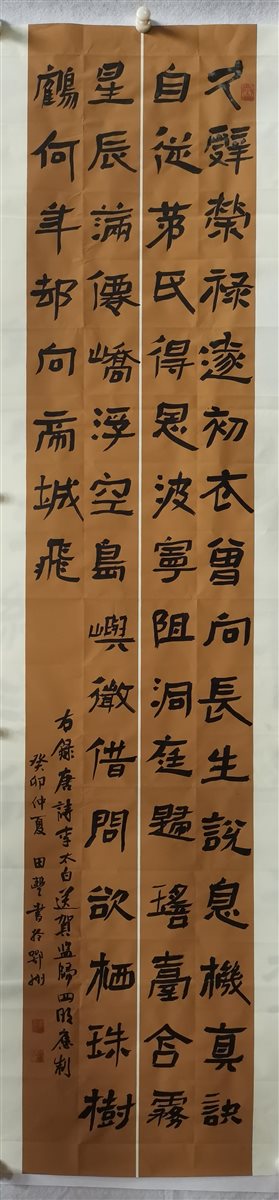 久辭榮祿遂初衣曾向長生說息機真訣
自從茅氏得恩波寧阻洞庭歸瑤臺含霧
星辰滿僊嶠浮空島嶼微借問欲栖珠樹
鶴何年却向帝城飛
右錄唐詩李太白送賀監歸四明應制
癸卯仲夏田豐書於鄂州